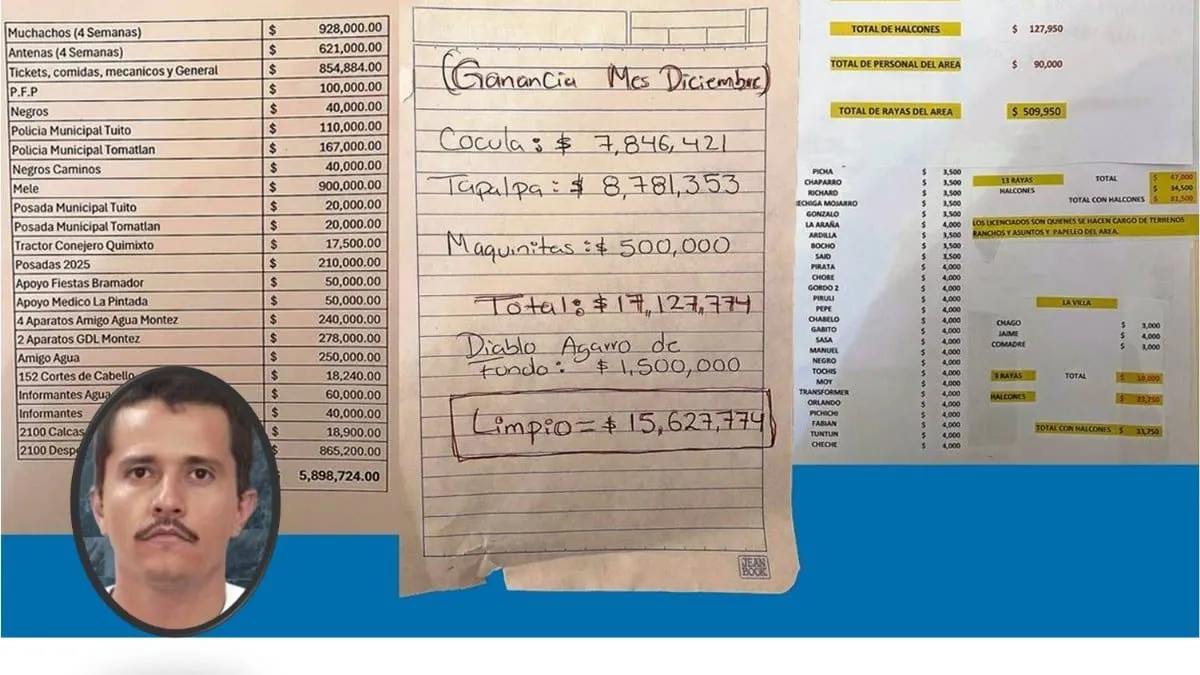 Muchachos (4 Semanas) $ 928,000.00
Antenas (4 Semanas) $ 621,000.00
Tickets, comidas, mecanicos y General $ 854,884.00
P.F.P $ 100,000.00
Negros $ 40,000.00
Policia Municipal Tuito $ 110,000.00
Policia Municipal Tomatlan $ 167,000.00
Negros Caminos $ 40,000.00
Mele $ 900,000.00
Posada Municipal Tuito $ 20,000.00
Posada Municipal Tomatlan $ 20,000.00
Tractor Conejero Quimixto $ 17,500.00
Posadas 2025 $ 210,000.00
Apoyo Fiestas Bramador $ 50,000.00
Apoyo Medico La Pintada $ 50,000.00
4 Aparatos Amigo Agua Montez $ 240,000.00
2 Aparatos GDL Montez $ 278,000.00
Amigo Agua $ 250,000.00
152 Cortes de Cabello $ 18,240.00
Informantes Agua $ 60,000.00
Informantes $ 40,000.00
2100 Calcas $ 18,900.00
2100 Desp $ 865,200.00
5,898,724.00
(Ganancia Mes Diciembre)
Cocula: $ 7,846,421
Tapalpa: $ 8,781,353
Maquinitas: $ 500,000
Total: $ 17,127,774
Diablo Agarro de
fondo: $ 1,500,000
Limpio = $ 15,627,774
JEAN
BOOK
TOTAL DE HALCONES $ 127,950
TOTAL DE PERSONAL DEL AREA $ 90,000
TOTAL DE RAYAS DEL AREA $ 509,950
PICHA $ 3,500
CHAPARRO $ 3,500
RICHARD $ 3,500
ECHIGA MOJARRO $ 3,500
GONZALO $ 3,500
LA ARAÑA $ 4,000
ARDILLA $ 3,500
BOCHO $ 3,500
SAID $ 3,500
PIRATA $ 4,000
CHORE $ 4,000
GORDO 2 $ 4,000
PIRULI $ 4,000
PEPE $ 4,000
CHABELO $ 4,000
GABITO $ 4,000
SASA $ 4,000
MANUEL $ 4,000
NEGRO $ 4,000
TOCHIS $ 4,000
MOY $ 4,000
TRANSFORMER $ 4,000
ORLANDO $ 4,000
PICHICHI $ 4,000
FABIAN $ 4,000
TUNTUN $ 4,000
CHECHE $ 4,000
13 RAYAS TOTAL $ 47,000
HALCONES $ 34,500
TOTAL CON HALCONES $ 81,500
LOS LICENCIADOS SON QUIENES SE HACEN CARGO DE TERRENOS
RANCHOS Y ASUNTOS Y PAPELEO DEL AREA.
LA VILLA
CHAGO $ 3,000
JAIME $ 4,000
COMADRE $ 3,000
3 RAYAS TOTAL $ 10,000
HALCONES $ 23,750
TOTAL CON HALCONES $ 33,750